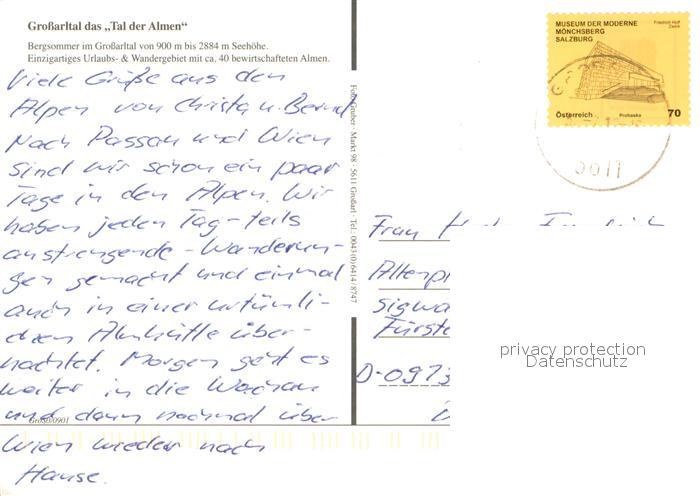 Großarltal das „Tal der Almen“
Bergsommer im Großarltal von 900 m bis 2884 m Seehöhe.
Einzigartiges Urlaubs- & Wandergebiet mit ca. 40 bewirtschafteten Almen.
Viele Grüße aus den
Alpen von Christa u. Bernd
Nach Passau und Wien
sind wir schon ein paar
Tage in den Alpen. Wir
haben jeden Tag - teils
anstrengende - Wanderun-
gen gemacht und einmal
auch in einer urtümli-
chen Almhütte über-
nachtet. Morgen geht es
weiter in die Wachau
und dann nochmal über
Wien wieder nach
Hause.
Großo/0901
Foto Gruber · Markt 98 · 5611 Großarl · Tel.: 0043(0)6414/8747
MUSEUM DER MODERNE
MÖNCHSBERG
SALZBURG
Friedrich Hoff
Zwink
Österreich
Prohaska
70
Frau
Altenp
Sigwa
Fürste
D-0973
privacy protection
Datenschutz